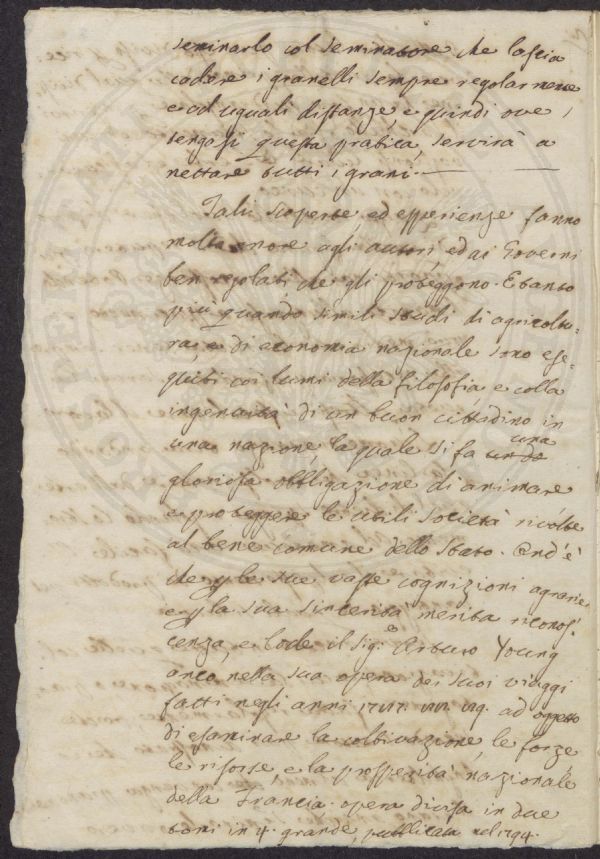 seminarlo col seminatore che lascia
cadere i granelli sempre regolarmente
e ad uguali distanze, e quindi ove
tengasi questa pratica, servirà a
nettare tutti i grani. —
Tali scoperte, ed esperienze fanno
molto onore agli autori, ed ai Governi
ben regolati che gli proteggono. E tanto
più quando simili studi di agricoltu-
ra, e di economia nazionale sono ese-
guiti coi lumi della filosofia, e colla
ingenuità di un buon cittadino in
una nazione, la quale si fa una
gloriosa obbligazione di animare
e proteggere le utili società rivolte
al bene comune dello Stato. Ond'è
che p le sue vaste cognizioni agrarie
e p la sua sincerità merita riconos-
cenza, e lode il Sig.e Arturo Young
anco nella sua opera dei suoi viaggi
fatti negli anni ad oggetto
di esaminare la coltivazione, le forze
le risorse, e la prosperità nazionale
della Francia. opera divisa in due
tomi in 4. grande, pubblicata nel 1794.